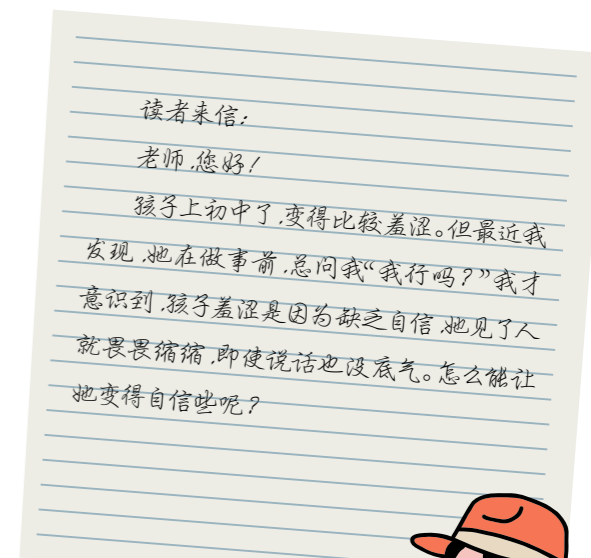 读者来信：
老师，您好！
孩子上初中了，变得比较羞涩。但最近我
发现，她在做事前，总问我“我行吗？”我才
意识到，孩子羞涩是因为缺乏自信，她见了人
就畏畏缩缩，即使说话也没底气。怎么能让
她变得自信些呢？